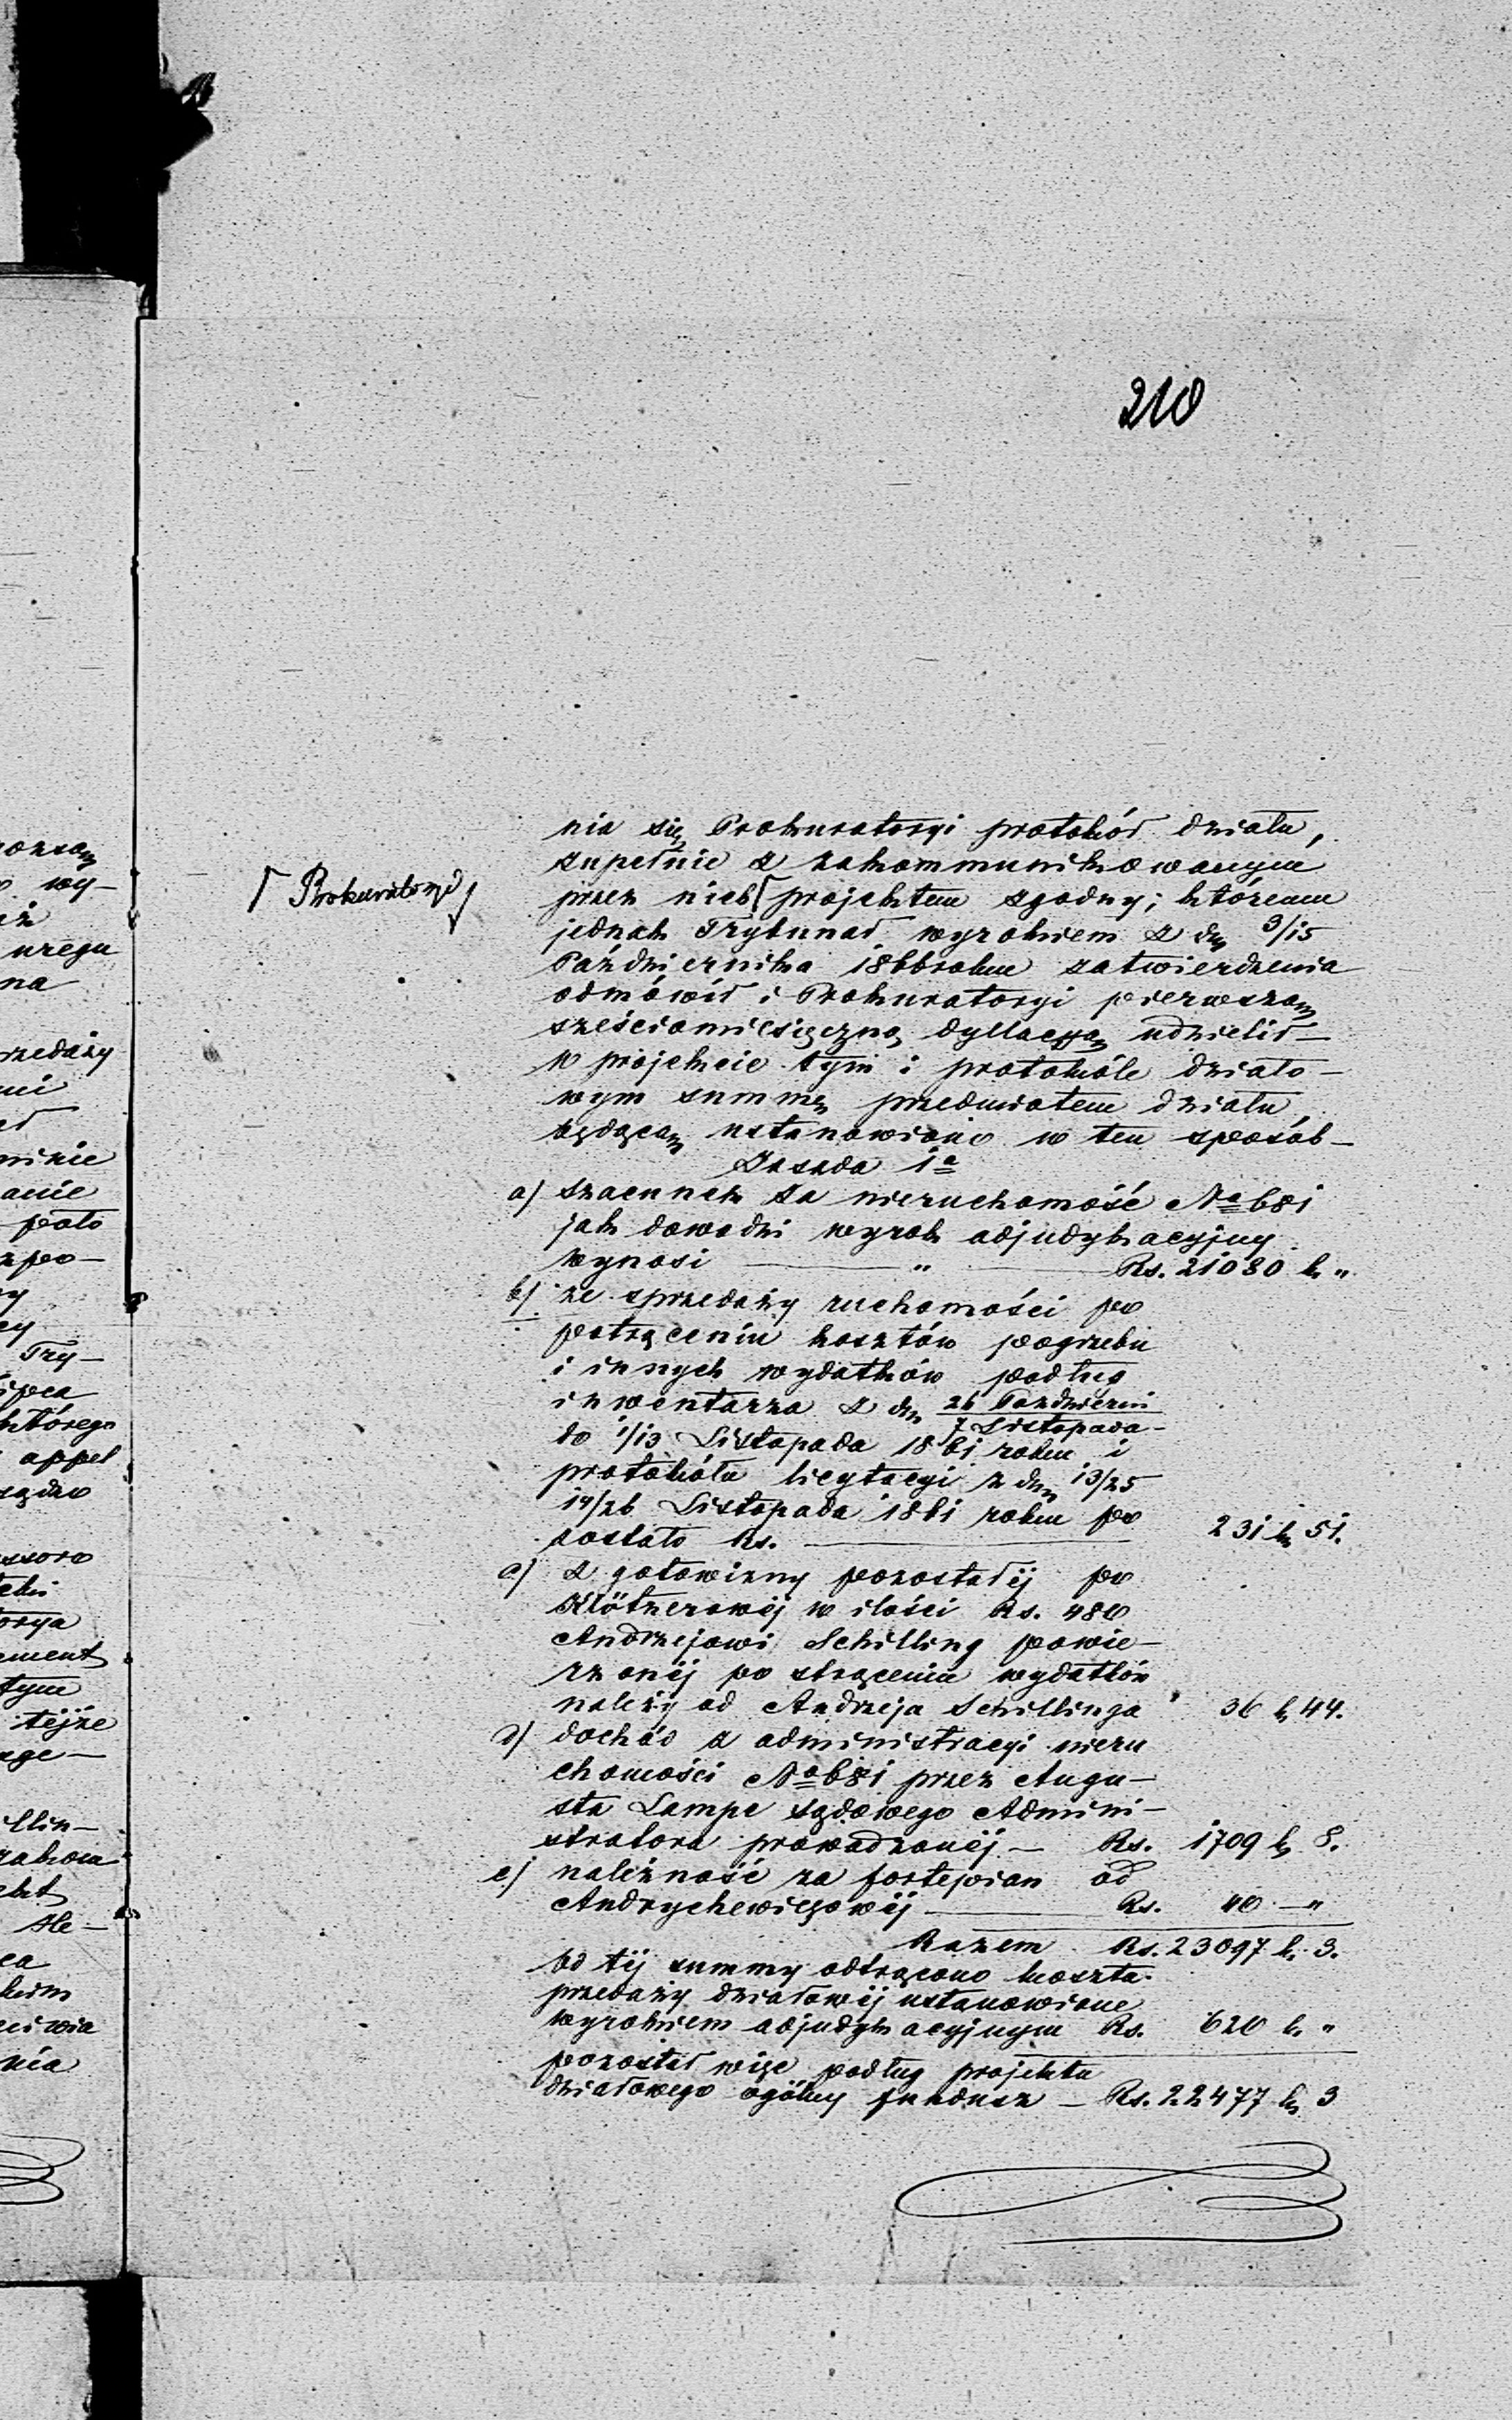 210
nia się Prokuratoryi protokół działu,
zupełnie z zakommunikowanym
przez nich⌈ projektem zgodny; któremu
⌈ Prokuratoryą
jednak Trybunał wyrokiem z dn 3/15
Października 1866 roku zatwierdzenia
odmówił i Prokuratoryi pierwszą
sześciomięsięczną dyllacyją udzielił –
W projekcie tym i protokóle działo-
wym summę przedmiotem działu
będącą ustanowiono w ten sposób –
Zasada 1a
a) szacunek za nieruchomość No 681
jak dowodzi wyrok adjudykacyjny
wynosi — „ — Rs. 21080 k „
b) ze sprzedaży ruchomości po
potrąceniu kosztów pogrzebu
i innych wydatków podług
inwentarza z dn 26 Październi
7 Listopada –
do 1/13 Listopada 1861 roku i
protokółu licytacyi z dn 13/25
14/26 Listopada 1861 roku po
zostało Rs. — 231 k 51.
c) z gotowizny pozostałej po
Klötzerowéj w ilości Rs. 480
Andrzejowi Schilling powie-
rzonéj po strąceniu wydatków
należy od Andrzeja Schillinga 36 k 44.
d) dochód z administracyi nieru
chomości No 681 przez Augu-
sta Lampe sądowego Admini-
stratora prowadzonéj – Rs. 1709 k 8.
e) należność za fortepian od
Andrychewiczowéj — Rs. 40 – „
Razem Rs. 23097 k. 3.
od téj summy odtrącono koszta
przedaży działowéj ustanowione
wyrokiem adjudykacyjnym Rs. 620 k. „
pozostał więc podług projektu
działowego ogólny fundusz – Rs. 22477 k 3